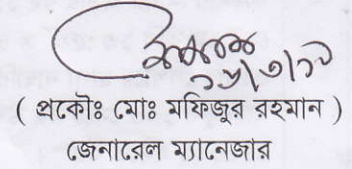 ( প্রকৌঃ মোঃ মফিজুর রহমান )
জেনারেল ম্যানেজার